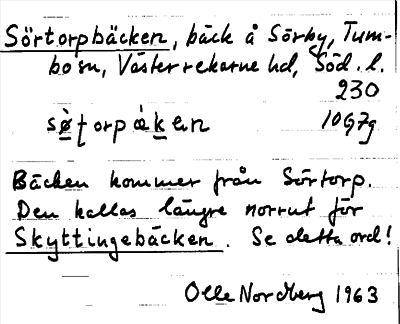 Sörtorpbäcken, bäck å Sörby, Tum-
bo sn, Västerrekarne hd, Söd. l.
230
sø̀ʈorpæ̀ken 10G7g
Bäcken kommer från Sörtorp.
Den kallas längre norrut för
Skyttingebäcken. Se detta ord!
Olle Nordberg 1963